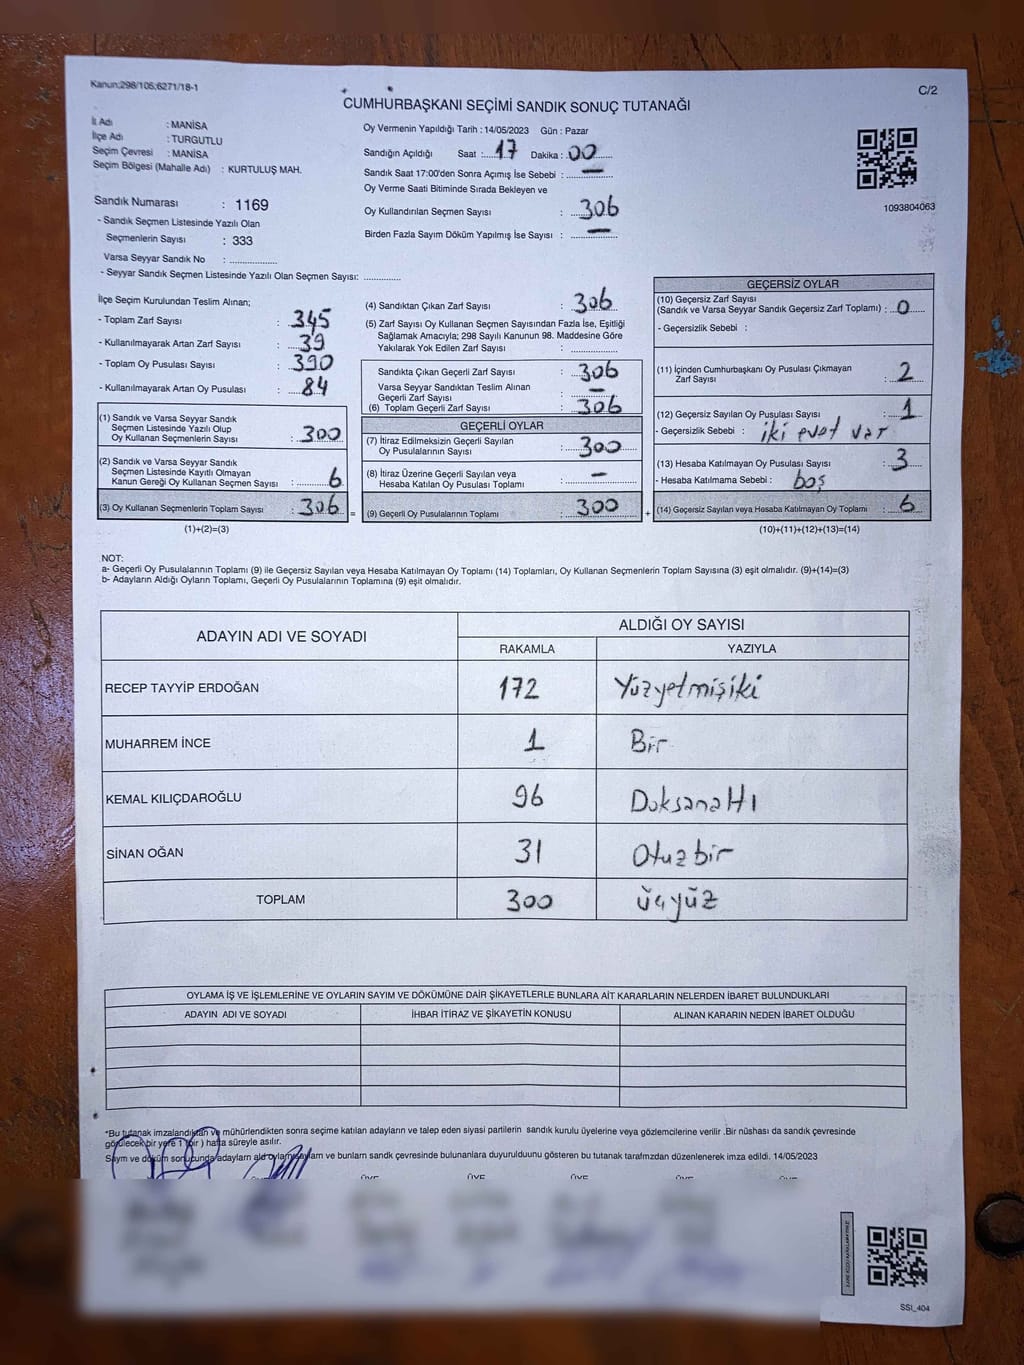 Kanun:298/105;6271/18-1
C/2
CUMHURBAŞKANI SEÇİMİ SANDIK SONUÇ TUTANAĞI
İl Adı : MANİSA
İlçe Adı : TURGUTLU
Seçim Çevresi : MANİSA
Seçim Bölgesi (Mahalle Adı) : KURTULUŞ MAH.
Sandık Numarası : 1169
- Sandık Seçmen Listesinde Yazılı Olan
Seçmenlerin Sayısı : 333
Varsa Seyyar Sandık No : ................
- Seyyar Sandık Seçmen Listesinde Yazılı Olan Seçmen Sayısı: ............
Oy Vermenin Yapıldığı Tarih : 14/05/2023 Gün : Pazar
Sandığın Açıldığı Saat : 17 Dakika : 00
Sandık Saat 17:00'den Sonra Açımış İse Sebebi : —
Oy Verme Saati Bitiminde Sırada Bekleyen ve
Oy Kullandırılan Seçmen Sayısı : 306
Birden Fazla Sayım Döküm Yapılmış İse Sayısı : —
1093804063
İlçe Seçim Kurulundan Teslim Alınan;
- Toplam Zarf Sayısı : 345
- Kullanılmayarak Artan Zarf Sayısı : 39
- Toplam Oy Pusulası Sayısı : 390
- Kullanılmayarak Artan Oy Pusulası : 84
(1) Sandık ve Varsa Seyyar Sandık
Seçmen Listesinde Yazılı Olup
Oy Kullanan Seçmenlerin Sayısı : 300
(2) Sandık ve Varsa Seyyar Sandık
Seçmen Listesinde Kayıtlı Olmayan
Kanun Gereği Oy Kullanan Seçmen Sayısı : 6
(3) Oy Kullanan Seçmenlerin Toplam Sayısı : 306
(1)+(2)=(3)
(4) Sandıktan Çıkan Zarf Sayısı : 306
(5) Zarf Sayısı Oy Kullanan Seçmen Sayısından Fazla İse, Eşitliği
Sağlamak Amacıyla; 298 Sayılı Kanunun 98. Maddesine Göre
Yakılarak Yok Edilen Zarf Sayısı : ................
Sandıkta Çıkan Geçerli Zarf Sayısı : 306
Varsa Seyyar Sandıktan Teslim Alınan
Geçerli Zarf Sayısı : —
(6) Toplam Geçerli Zarf Sayısı : 306
GEÇERLİ OYLAR
(7) İtiraz Edilmeksizin Geçerli Sayılan
Oy Pusulalarının Sayısı : 300
(8) İtiraz Üzerine Geçerli Sayılan veya
Hesaba Katılan Oy Pusulası Toplamı : —
= (9) Geçerli Oy Pusulalarının Toplamı : 300
GEÇERSİZ OYLAR
(10) Geçersiz Zarf Sayısı
(Sandık ve Varsa Seyyar Sandık Geçersiz Zarf Toplamı) : 0
- Geçersizlik Sebebi :
(11) İçinden Cumhurbaşkanı Oy Pusulası Çıkmayan
Zarf Sayısı : 2
(12) Geçersiz Sayılan Oy Pusulası Sayısı : 1
- Geçersizlik Sebebi : iki evet var
(13) Hesaba Katılmayan Oy Pusulası Sayısı : 3
- Hesaba Katılmama Sebebi : boş
+ (14) Geçersiz Sayılan veya Hesaba Katılmayan Oy Toplamı : 6
(10)+(11)+(12)+(13)=(14)
NOT:
a- Geçerli Oy Pusulalarının Toplamı (9) ile Geçersiz Sayılan veya Hesaba Katılmayan Oy Toplamı (14) Toplamları, Oy Kullanan Seçmenlerin Toplam Sayısına (3) eşit olmalıdır. (9)+(14)=(3)
b- Adayların Aldığı Oyların Toplamı, Geçerli Oy Pusulalarının Toplamına (9) eşit olmalıdır.
ADAYIN ADI VE SOYADI
ALDIĞI OY SAYISI
RAKAMLA YAZIYLA
RECEP TAYYİP ERDOĞAN 172 Yüzyetmişiki
MUHARREM İNCE 1 Bir
KEMAL KILIÇDAROĞLU 96 Doksanaltı
SİNAN OĞAN 31 Otuzbir
TOPLAM 300 üçyüz
OYLAMA İŞ VE İŞLEMLERİNE VE OYLARIN SAYIM VE DÖKÜMÜNE DAİR ŞİKAYETLERLE BUNLARA AİT KARARLARIN NELERDEN İBARET BULUNDUKLARI
ADAYIN ADI VE SOYADI İHBAR İTİRAZ VE ŞİKAYETİN KONUSU ALINAN KARARIN NEDEN İBARET OLDUĞU
*Bu tutanak imzalandıktan ve mühürlendikten sonra seçime katılan adayların ve talep eden siyasi partilerin sandık kurulu üyelerine veya gözlemcilerine verilir .Bir nüshası da sandık çevresinde
görülecek bir yere 1 (bir ) hafta süreyle asılır.
Sayım ve döküm sonucunda adayların aldı oyların sayım ve bunların sandık çevresinde bulunanlara duyurulduunu gösteren bu tutanak tarafımzdan düzenlenerek imza edildi. 14/05/2023
ÜYE ÜYE ÜYE ÜYE ÜYE
SSI_404